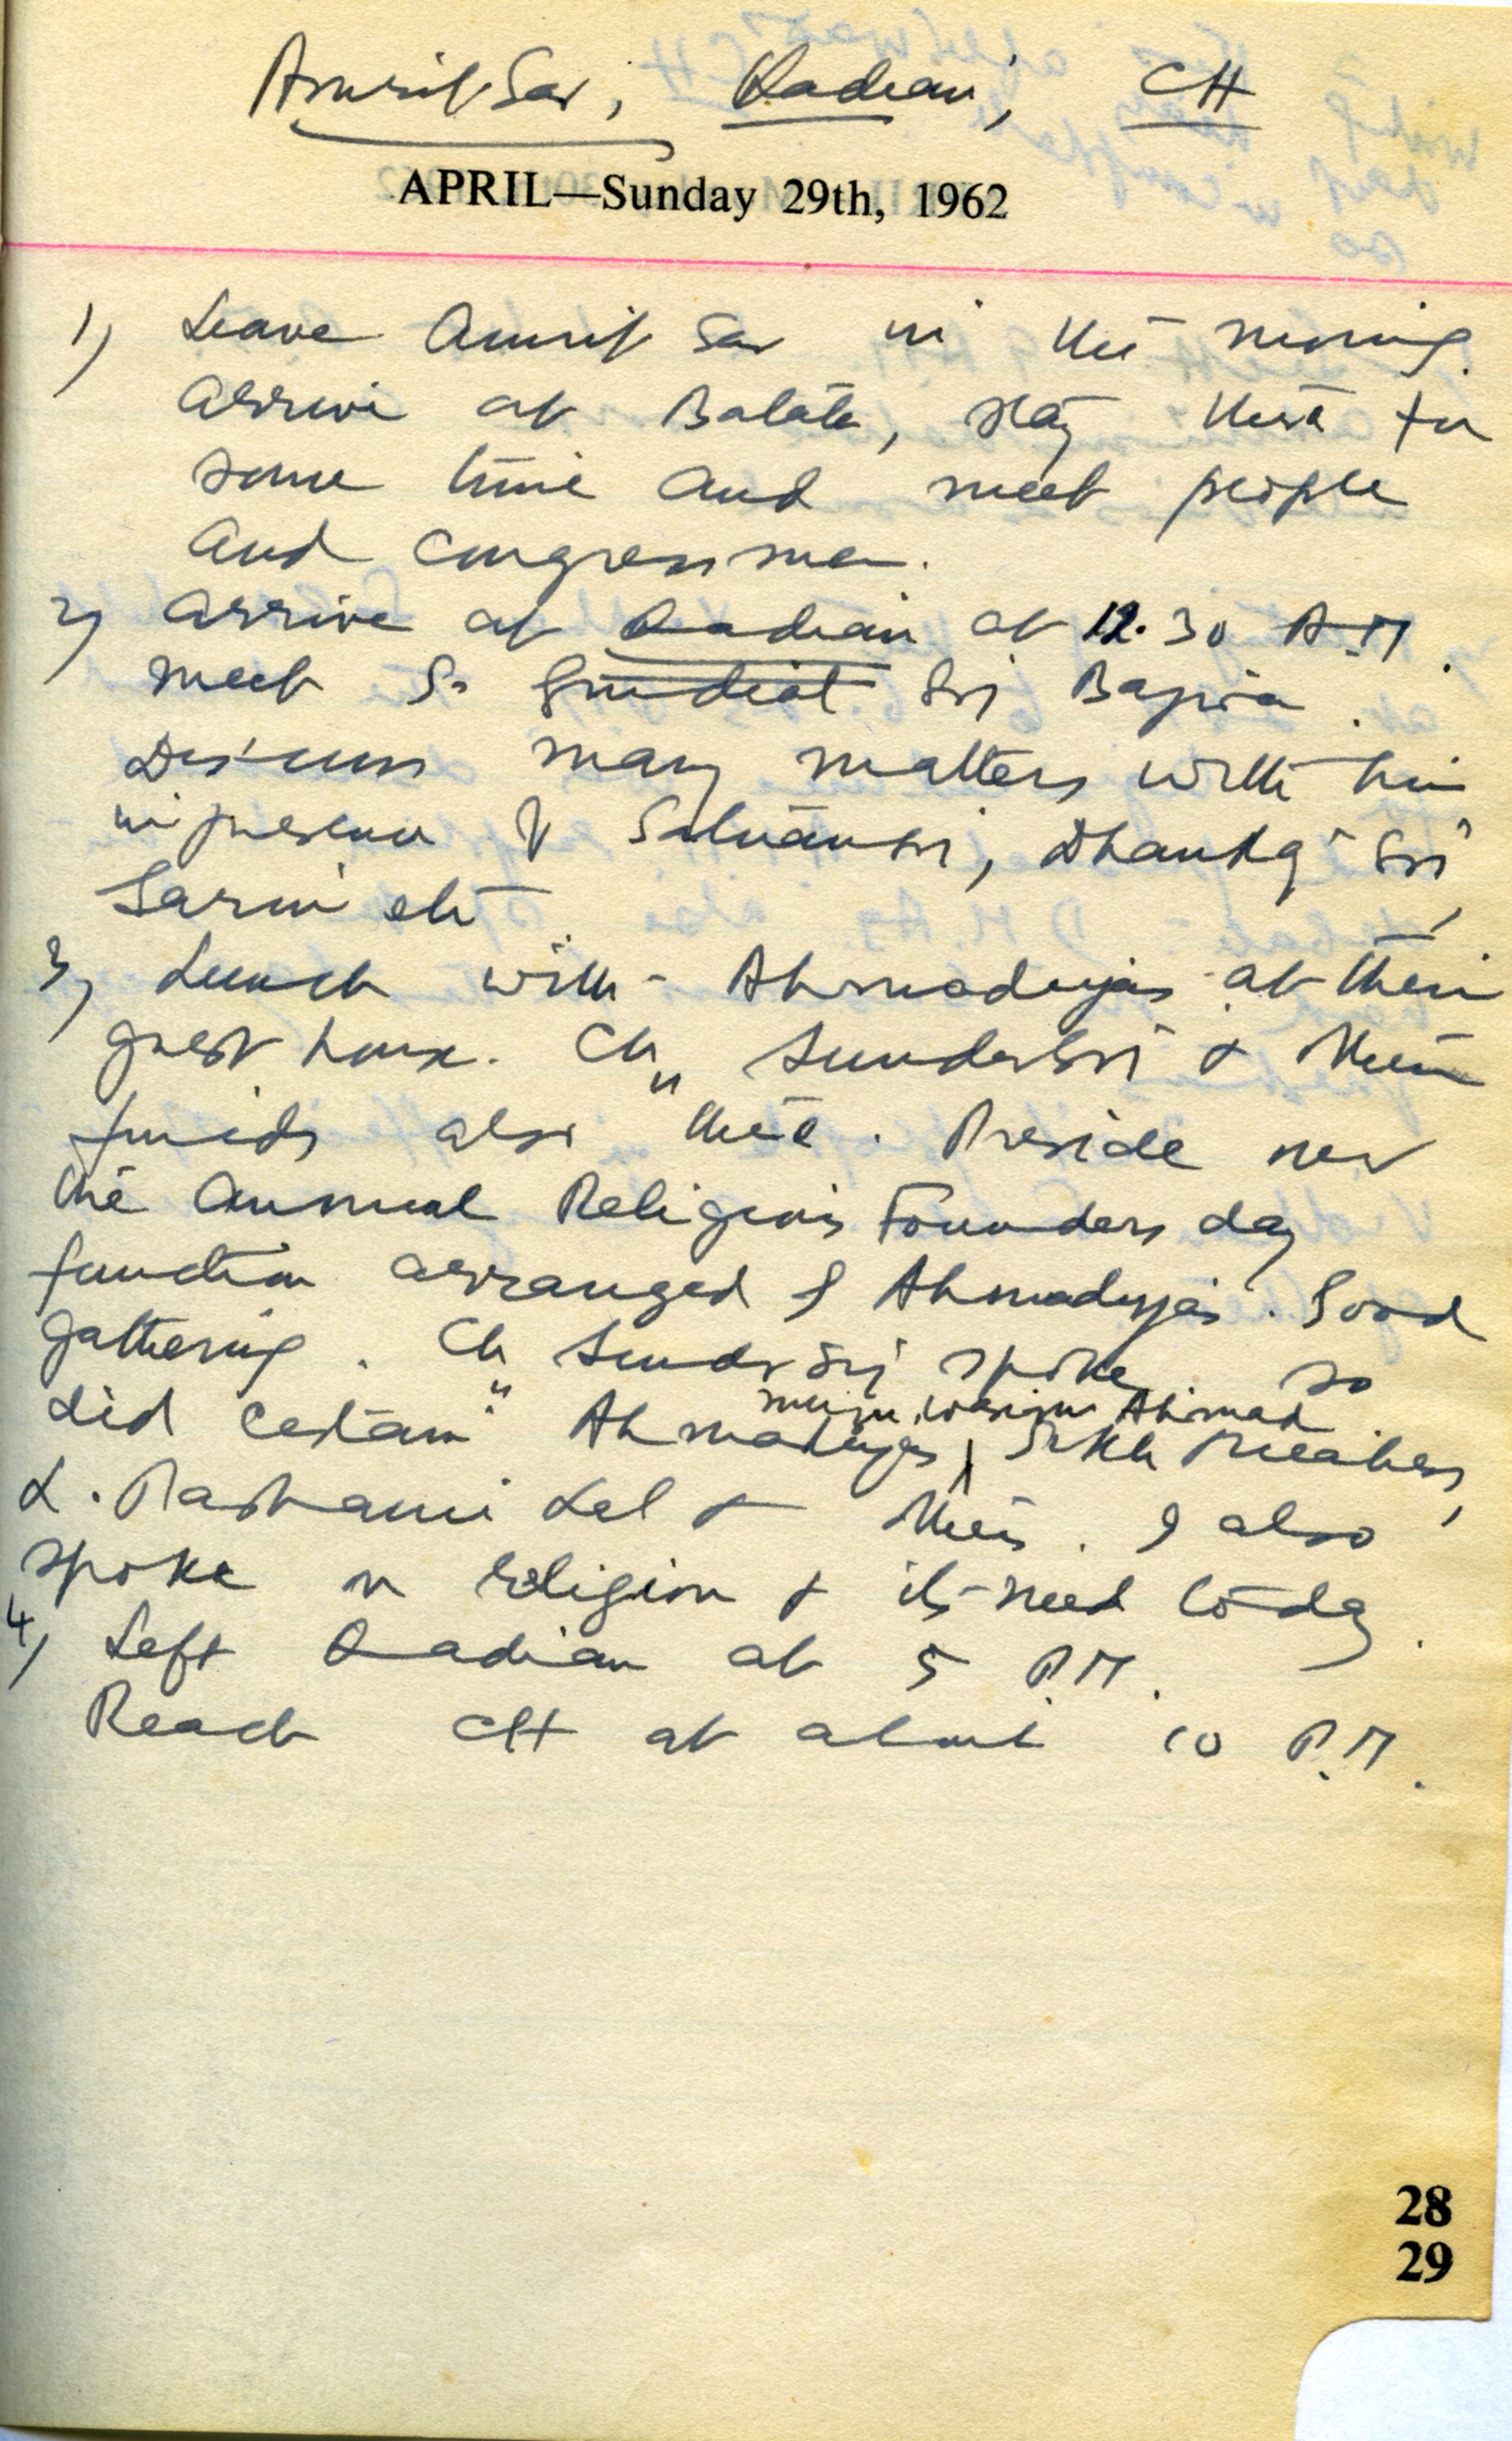 AmritSar, Qadian, CH
APRIL—Sunday 29th, 1962
1) Leave Amrit Sar in the morning.
Arrive at Batala, stay there for
some time and meet people
and Congressmen.
2) Arrive at Qadian at 12.30 A.M.
meet S. Gurdial Sri Bajwa.
Discuss many matters with him
in presence of Satnam Sri, Sri,
Sarin etc
3) Lunch with Ahmadiyas at their
guest house. Ch Sunder Sri & their
friends also there. Preside over
the Annual Religious Founders day
function arranged by Ahmadiyas. Good
gathering. Ch Sunder Sri spoke so
Ahmad
did certain Ahmadiyas, Sikh Preachers,
L. Lal & others. I also
spoke on religion & its need today.
4) Left Qadian at 5 P.M.
Reach CH at about 10 P.M.
28
29